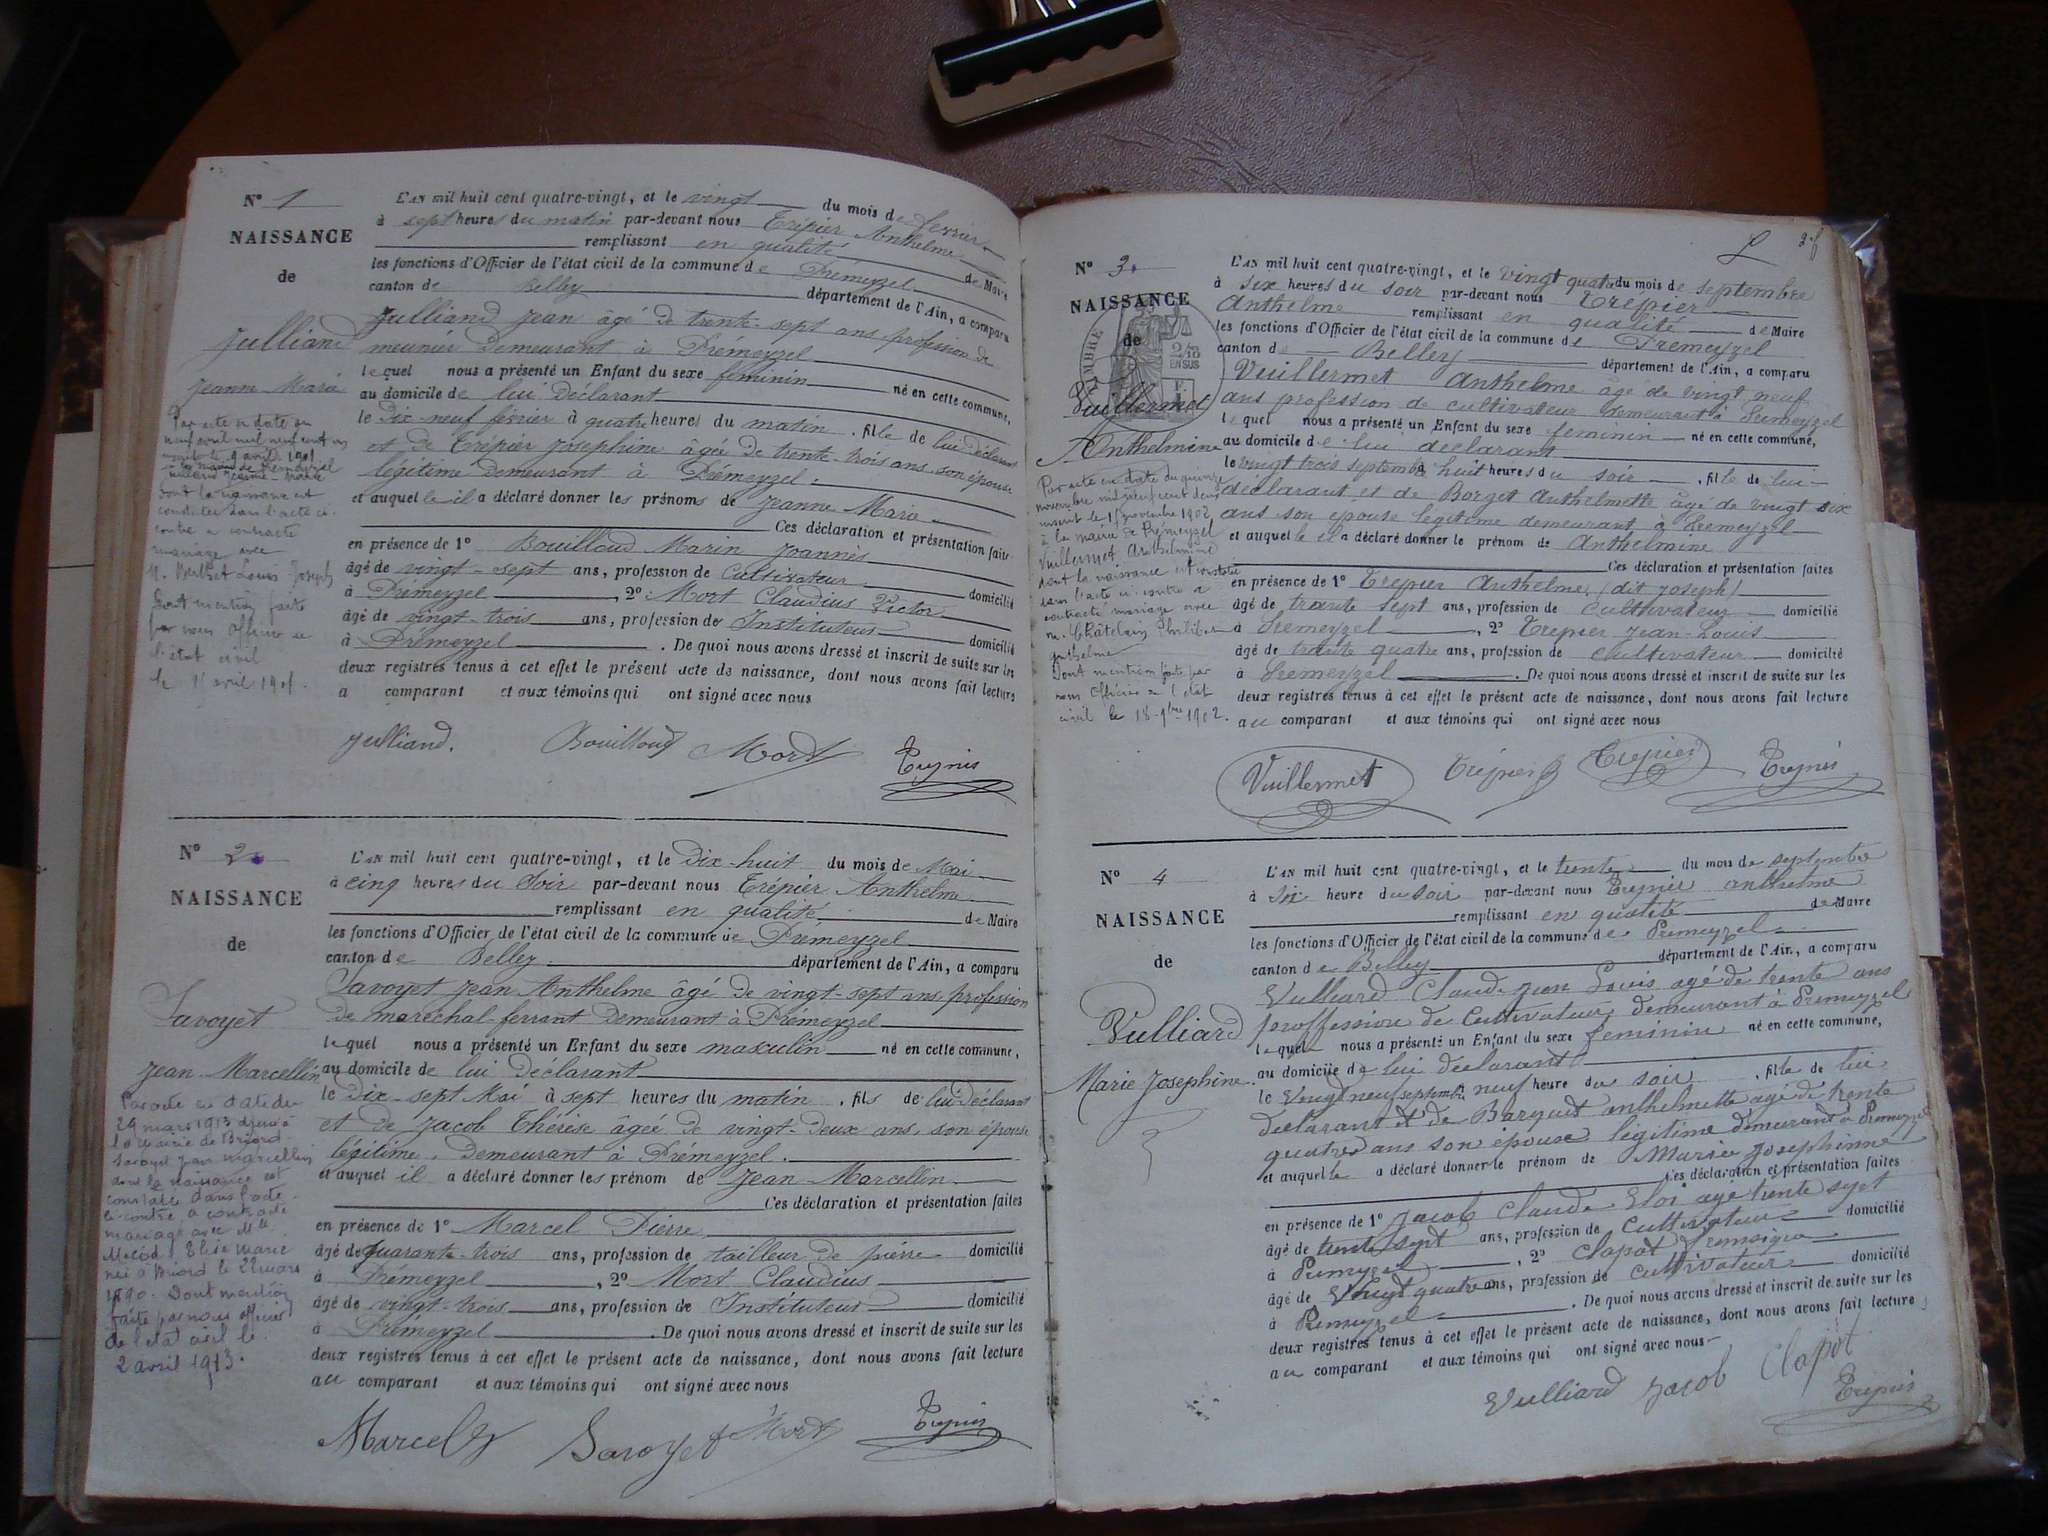 N° 1
NAISSANCE
de
Julliand
Jeanne Marie
Par acte en date du
neuf avril mil neuf cent un
Julliand Jeanne-Marie
dont la naissance est
constatée dans l'acte ci-
contre a contracté
mariage avec
M. Berthet Louis Joseph
Dont mention faite
par nous Officier de
l'état civil
L'AN mil huit cent quatre-vingt, et le vingt du mois de fevrier
à sept heures du matin par-devant nous Trépier Anthelme
remplissant en qualité de Maire
les fonctions d'Officier de l'état civil de la commune de Prémeyzel
canton de Belley département de l'Ain, a comparu
Julliand Jean âgé de trente-sept ans profession de
meunier demeurant à Prémeyzel
lequel nous a présenté un Enfant du sexe féminin né en cette commune,
au domicile de lui déclarant
le dix-neuf février à quatre heures du matin, fille de lui déclarant
et de Trépier Joséphine âgée de trente-trois ans, son épouse
légitime demeurant à Prémeyzel.
et auquel le il a déclaré donner les prénoms de Jeanne Marie
Ces déclaration et présentation faite
en présence de 1° Bouilloud Marin Joannès
âgé de vingt-sept ans, profession de Cultivateur domicilié
à Prémeyzel, 2° Mort Claudius Victor
âgé de vingt-trois ans, profession de Instituteur domicilié
à Prémeyzel. De quoi nous avons dressé et inscrit de suite sur les
deux registres tenus à cet effet le présent acte de naissance, dont nous avons fait lecture
a comparant et aux témoins qui ont signé avec nous
Julliand. Bouilloud Mort Trépier
N° 2
NAISSANCE
de
Savoyet
Jean Marcellin
Par acte en date du
29 mars 1913 dressé à
la mairie de Briord
Savoyet Jean Marcellin
dont la naissance est
constatée dans l'acte
ci-contre a contracté
mariage avec Mlle
Elise Marie
née à Briord le 22 mars
1890. Dont mention
faite par nous officier
de l'état civil le
2 avril 1913.
L'AN mil huit cent quatre-vingt, et le Dix-huit du mois de Mai
à cinq heures du Soir par-devant nous Trépier Anthelme
remplissant en qualité de Maire
les fonctions d'Officier de l'état civil de la commune de Prémeyzel
canton de Belley département de l'Ain, a comparu
Savoyet Jean Anthelme âgé de vingt-sept ans, profession
de maréchal-ferrant demeurant à Prémeyzel
lequel nous a présenté un Enfant du sexe masculin né en cette commune,
au domicile de lui déclarant
le Dix-sept Mai à sept heures du matin, fils de lui déclarant
et de Jacob Thérèse âgée de vingt-deux ans, son épouse
légitime, demeurant à Prémeyzel.
et auquel il a déclaré donner les prénom de Jean-Marcellin
Ces déclaration et présentation faites
en présence de 1° Marcel Pierre
âgé de quarante-trois ans, profession de tailleur de pierre domicilié
à Prémeyzel, 2° Mort Claudius
âgé de vingt-trois ans, profession de Instituteur domicilié
à Prémeyzel. De quoi nous avons dressé et inscrit de suite sur les
deux registres tenus à cet effet le présent acte de naissance, dont nous avons fait lecture
au comparant et aux témoins qui ont signé avec nous
Marcel Savoyet Mort Trépier
N° 3
NAISSANCE
de
TIMBRE
2/10
EN SUS
Vuillermet
Anthelmine
Par acte en date du quinze
novembre mil neuf cent deux
inscrit le 15 novembre 1902
à la mairie de Prémeyzel
Vuillermet Anthelmine
dont la naissance est constatée
dans l'acte ci-contre a
contracté mariage avec
M. Châtelain Philibert
Anthelme
Dont mention faite par
nous Officier de l'état
civil le 18 9bre 1902.
L'AN mil huit cent quatre-vingt, et le vingt quatre du mois de septembre
à six heures du soir par-devant nous Trepier
Anthelme remplissant en qualité de Maire
les fonctions d'Officier de l'état civil de la commune de Premeyzel
canton de Belley département de l'Ain, a comparu
Vuillermet Anthelme âgé de vingt neuf
ans profession de cultivateur demeurant à Premeyzel
lequel nous a présenté un Enfant du sexe feminin né en cette commune,
au domicile de lui déclarant
le vingt trois septembre huit heures du soir, fille de lui
déclarant et de Borget Anthelmette âgée de vingt six
ans son épouse légitime demeurant à Premeyzel
et auquel le il a déclaré donner le prénom de Anthelmine
Ces déclaration et présentation faites
en présence de 1° Trepier Anthelme (dit Joseph)
âgé de trante sept ans, profession de cultivateur domicilié
à Premeyzel, 2° Trepier Jean-Louis
âgé de trante quatre ans, profession de cultivateur domicilié
à Premeyzel. De quoi nous avons dressé et inscrit de suite sur les
deux registres tenus à cet effet le présent acte de naissance, dont nous avons fait lecture
au comparant et aux témoins qui ont signé avec nous
Vuillermet Trépier Trepier Trépier
N° 4
NAISSANCE
de
Vulliard
Marie Josephine
L'AN mil huit cent quatre-vingt, et le trente du mois de septembre
à six heure du soir par-devant nous Trepier anthelme
remplissant en qualité de Maire
les fonctions d'Officier de l'état civil de la commune de Premeyzel
canton de Belley département de l'Ain, a comparu
Vulliard Claude Jean Louis agé de trente ans
proffession de cultivateur demeurant à Premeyzel
lequel nous a présenté un Enfant du sexe feminin né en cette commune,
au domicile de lui déclarant
le vingt neuf septembre neuf heure du soir, fille de lui
declarant et de anthelmette agé de trente
quatre ans son épouse légitime demeurant à Premeyzel
et auquel le a déclaré donner le prénom de Marie Josephinne
Ces déclaration et présentation faites
en présence de 1° Jacob Claude Eloi agé trente sept
âgé de trente sept ans, profession de cultivateur domicilié
à Premeyzel, 2° Clapot
âgé de vingt quatre ans, profession de cultivateur domicilié
à Premeyzel. De quoi nous avons dressé et inscrit de suite sur les
deux registres tenus à cet effet le présent acte de naissance, dont nous avons fait lecture
au comparant et aux témoins qui ont signé avec nous
Vulliard Jacob Clapot Trépier